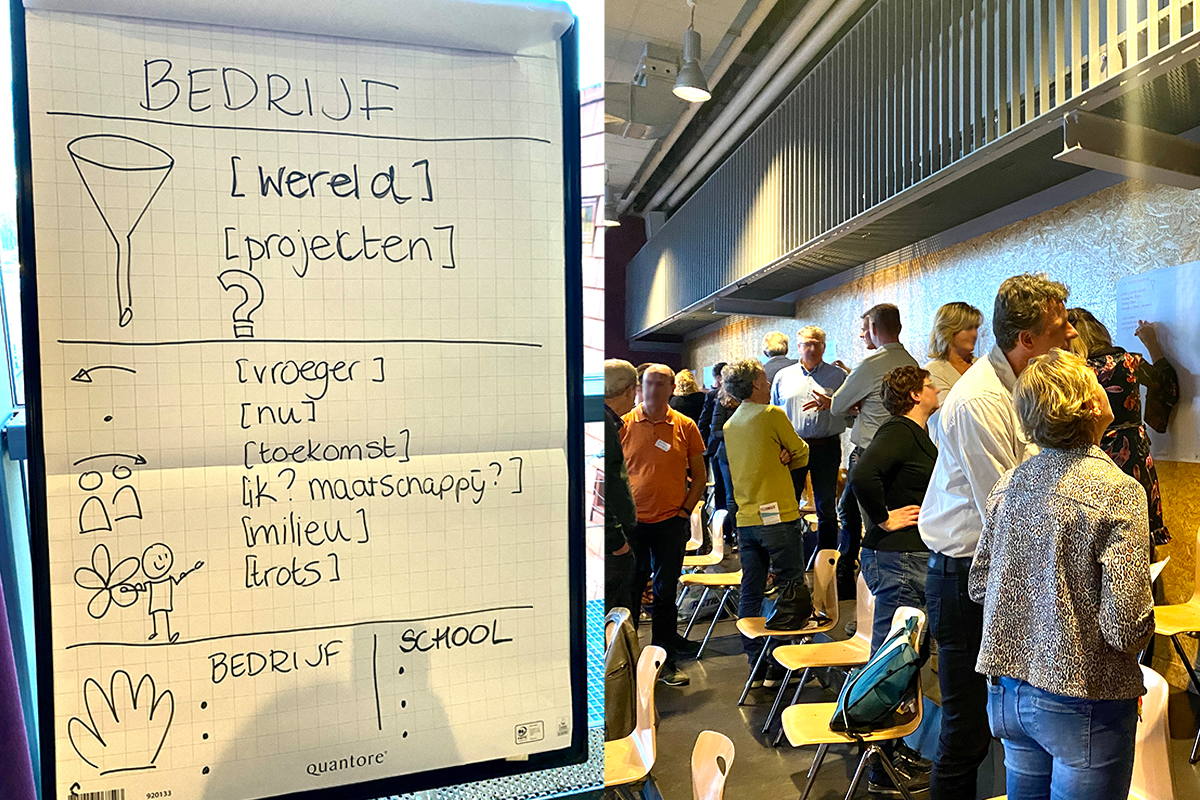 BEDRIJF
[wereld]
[projecten]
?
[vroeger]
[nu]
[toekomst]
[ik? maatschappij?]
[milieu]
[trots]
BEDRIJF
SCHOOL
quantore
920133